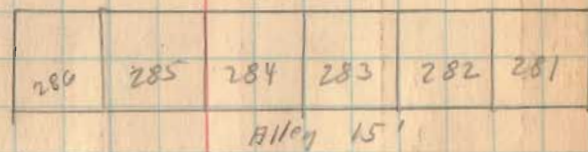 286 285 284 283 282 281
Alley 15'